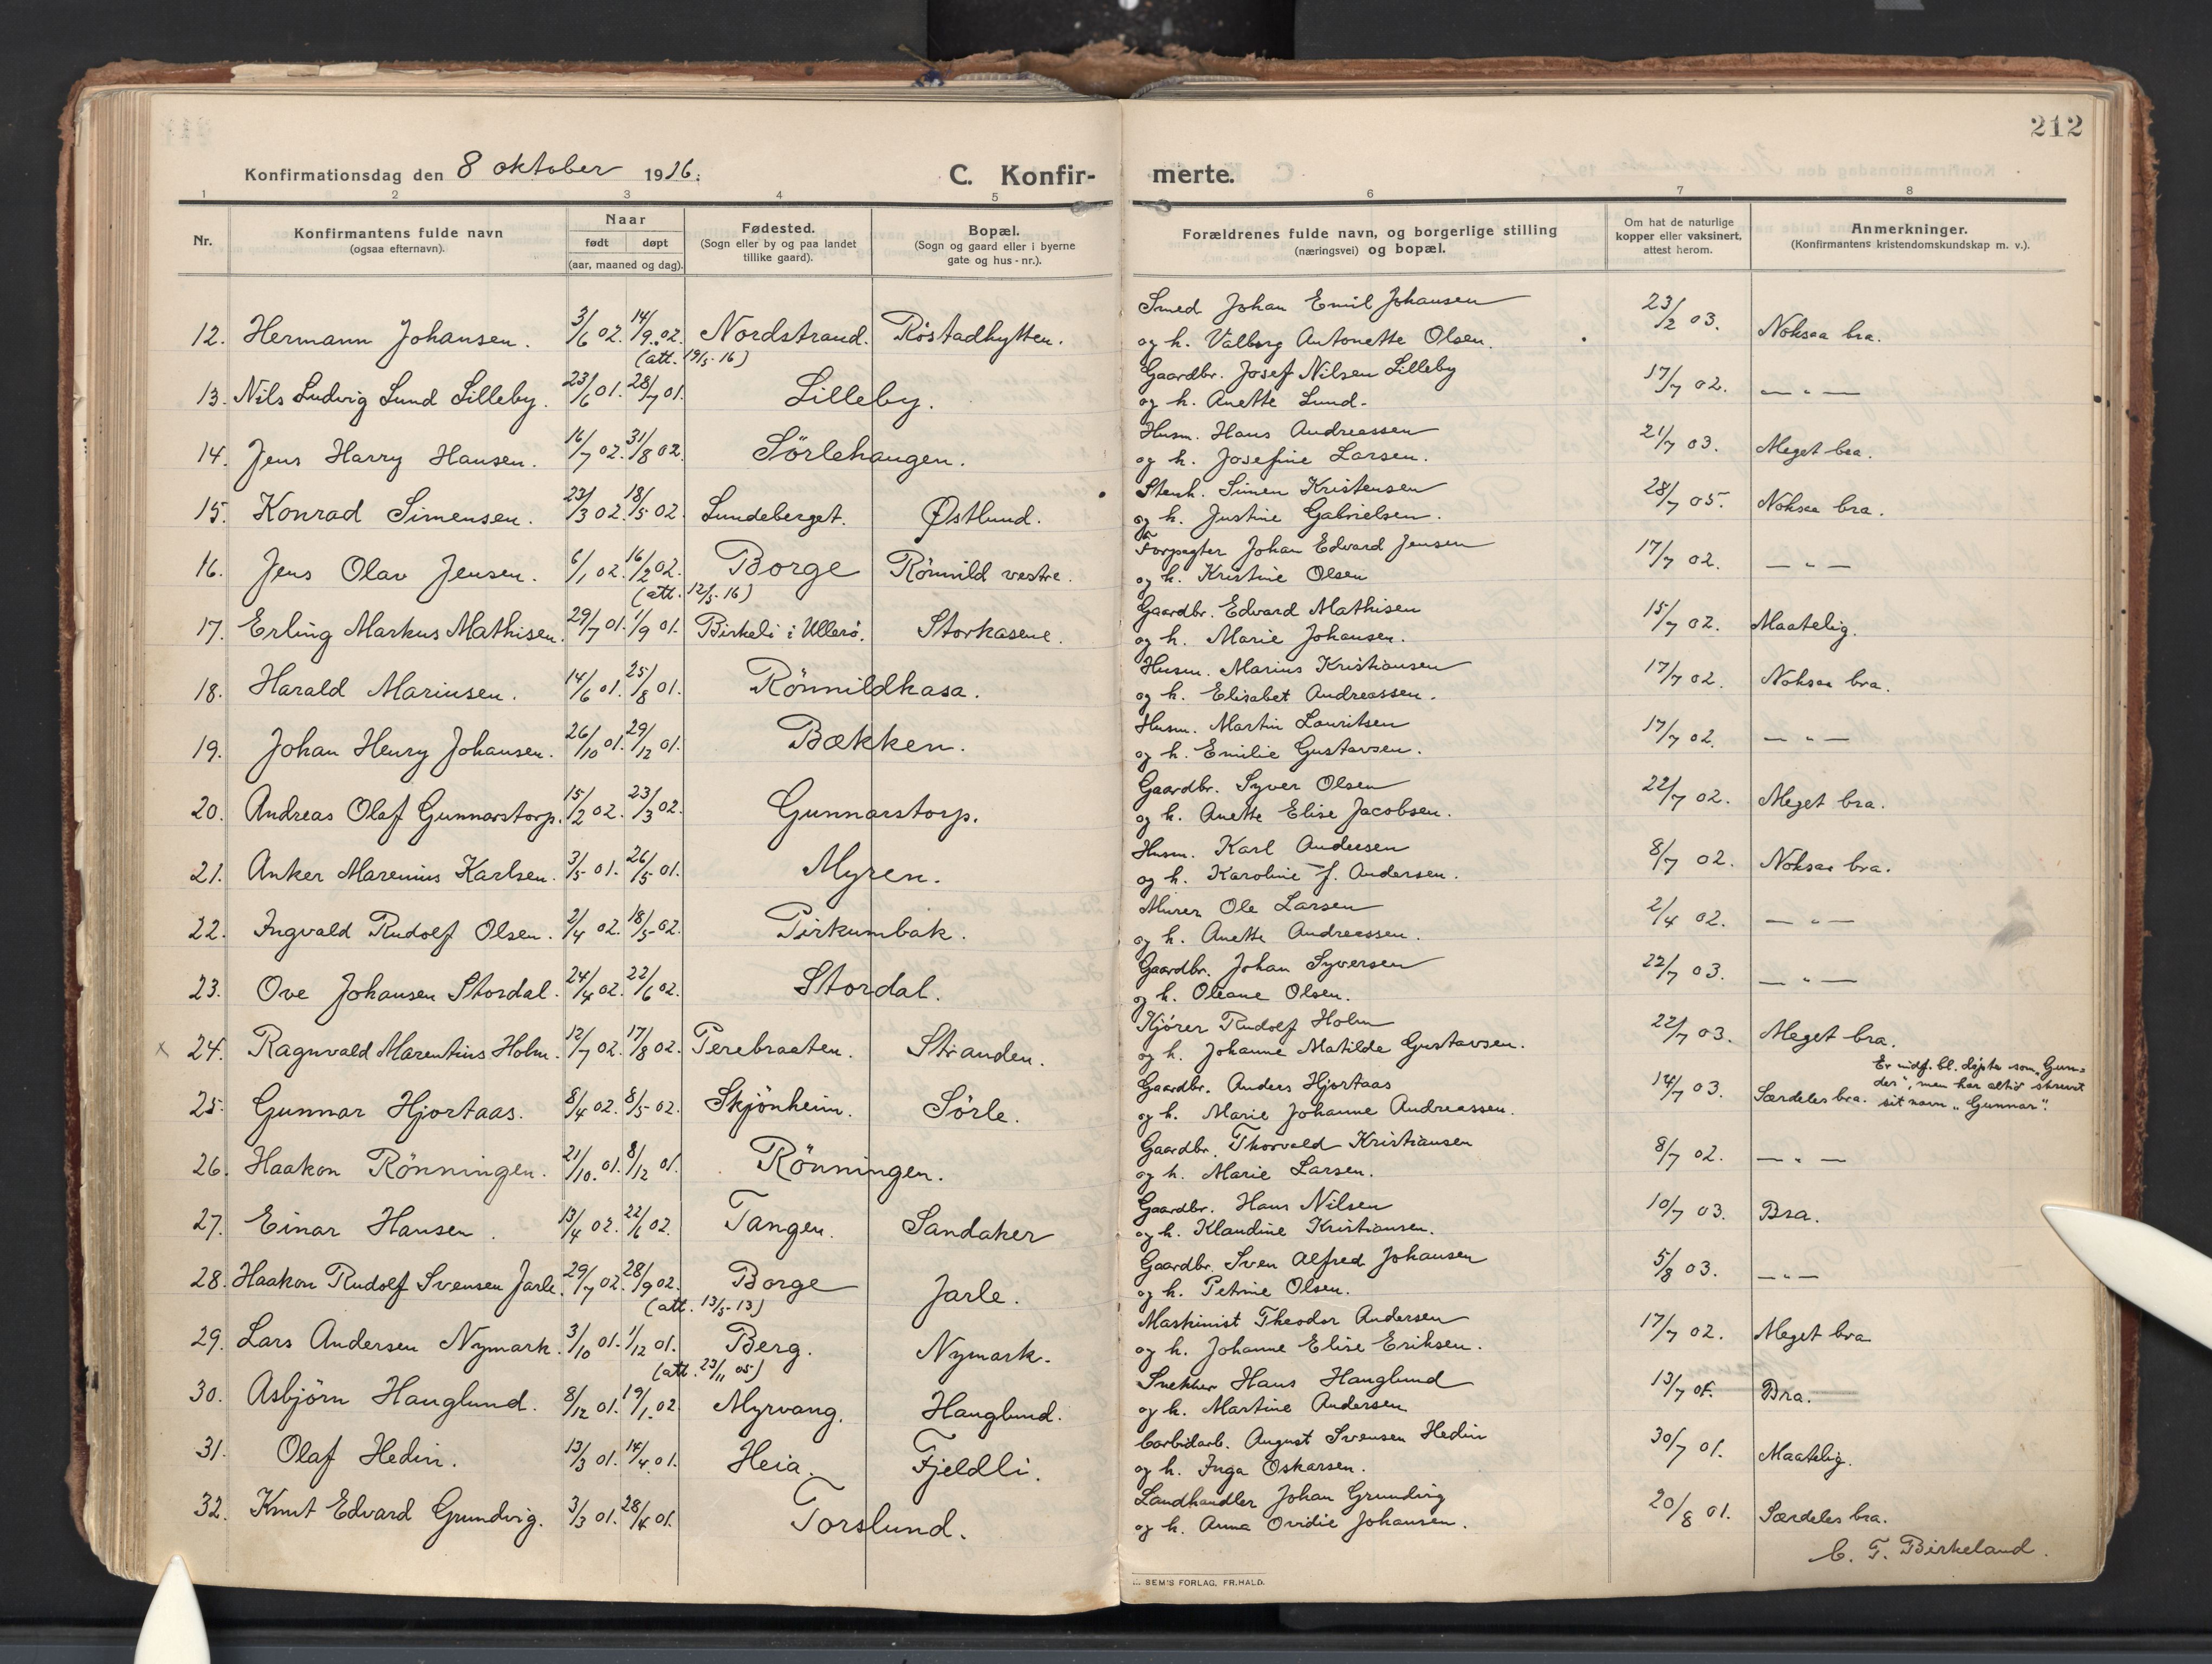 212
Konfirmationsdag den 8 oktober 1916. C. Konfirmerte.
1 2 3 4 5 6 7 8
Nr. Konfirmantens fulde navn (ogsaa efternavn). Naar født døpt (aar, maaned og dag). Fødested. (Sogn eller by og paa landet tillike gaard). Bopæl. (Sogn og gaard eller i byerne gate og hus-nr.). Forældrenes fulde navn, og borgerlige stilling (næringsvei) og bopæl. Om hat de naturlige kopper eller vaksinert, attest herom. Anmerkninger. (Konfirmantens kristendomskundskap m. v.).
12. Hermann Johansen. 3/6 02. 14/9 02. (att. 19/5-16) Nordstrand. Röstadhytten. Smed Johan Emil Johansen
og h. Valborg Antonette Olsen. 23/2 03. Noksaa bra.
13. Nils Ludvig Lund Lilleby. 23/6 01. 28/7 01. Lilleby. Gaardbr. Josef Nilsen Lilleby
og h. Anette Lund. 17/7 02. — " —
14. Jens Harry Hansen. 16/7 02. 31/8 02. Sörlehaugen. Husm. Hans Andreassen
og h. Josefine Larsen. 21/7 03. Meget bra.
15. Konrad Simensen. 23/3 02. 18/5 02. Lundeberget. Østlund. Stenh. Simen Kristensen
og h. Justine Gabrielsen. 28/7 05. Noksaa bra.
16. Jens Olav Jensen. 6/1 02. 16/2 02. (att. 12/5-16) Borge Rönnild vestre. Forpagter Johan Edvard Jensen
og h. Kristine Olsen 17/7 02. — " —
17. Erling Markus Mathisen. 29/7 01. 1/9 01. Birkeli i Ullerö. Storkasene. Gaardbr. Edvard Mathisen
og h. Marie Johansen. 15/7 02. Maatelig.
18. Harald Mariusen. 14/6 01. 25/8 01. Rönnildkasa. Husm. Marius Kristiansen
og h. Elisabet Andreassen. 17/7 02. Noksaa bra.
19. Johan Henry Johansen. 26/10 01. 29/12 01. Bækken. Husm. Martin Lauritsen
og h. Emilie Gustavsen. 17/7 02. — " —
20. Andreas Olaf Gunnarstorp. 15/2 02. 23/3 02. Gunnarstorp. Gaardbr. Syver Olsen
og h. Anette Elise Jacobsen. 22/7 02. Meget bra.
21. Anker Marenius Karlsen. 3/5 01. 26/5 01. Myren. Husm. Karl Andersen
og h. Karoline J. Andersen. 8/7 02. Noksaa bra.
22. Ingvald Rudolf Olsen. 2/4 02. 18/5-02. Pirkumbak. Murer Ole Larsen
og h. Anette Andreassen. 2/4 02. — " —
23. Ove Johansen Stordal. 24/4 02. 22/6 02. Stordal. Gaardbr. Johan Syversen
og h. Oleane Olsen. 22/7 03. — " —
x 24. Ragnvald Marentius Holm. 12/7 02. 17/8 02. Perebraaten. Stranden. Kjörer Rudolf Holm
og h. Johanne Matilde Gustavsen. 22/7 03. Meget bra.
25. Gunnar Hjortaas. 8/4 02. 8/5-02. Skjönheim. Sörle. Gaardbr. Anders Hjortaas
og h. Marie Johanne Andreassen. 14/7 03. Særdeles bra. Er indf. bl. døpte som „Gun-
der", men har altid skrevet
sit navn „Gunnar".
26. Haakon Rönningen. 21/10. 01. 8/12 01. Rönningen. Gaardbr. Thorvald Kristiansen
og h. Marie Larsen. 8/7 02. — " —
27. Einar Hansen. 13/4 02. 22/6 02. Tangen. Sandaker Gaardbr. Hans Nilsen
og h. Klaudine Kristiansen. 10/7 03. Bra.
28. Haakon Rudolf Svensen Jarle. 29/7 02. 28/9 02. (att. 13/5-13) Borge Jarle. Gaardbr. Sven Alfred Johansen
og h. Petrine Olsen. 5/8 03. — " —
29. Lars Andersen Nymark. 3/10 01. 1/12 01. (att. 23/11 05) Berg. Nymark. Maskinist Theodor Andersen
og h. Johanne Elise Eriksen. 17/7 02. Meget bra
30. Asbjörn Hauglund. 8/12 01. 19/1. 02. Myrvang. Hauglund. Snekker Hans Hauglund
og h. Martine Andersen 13/7 05. Bra.
31. Olaf Hedin. 13/3 01. 14/4 01. Heia. Fjeldli. Carbidarb. August Svensen Hedin
og h. Inga Oskarsen. 30/7 01. Maatelig.
32. Knut Edvard Grundvig. 3/3 01. 28/4 01. Torslund. Landhandler Johan Grundvig
og h. Anna Ovidie Johansen. 20/8 01. Særdeles bra.
C. F. Birkeland.
SEM'S FORLAG, FR.HALD.